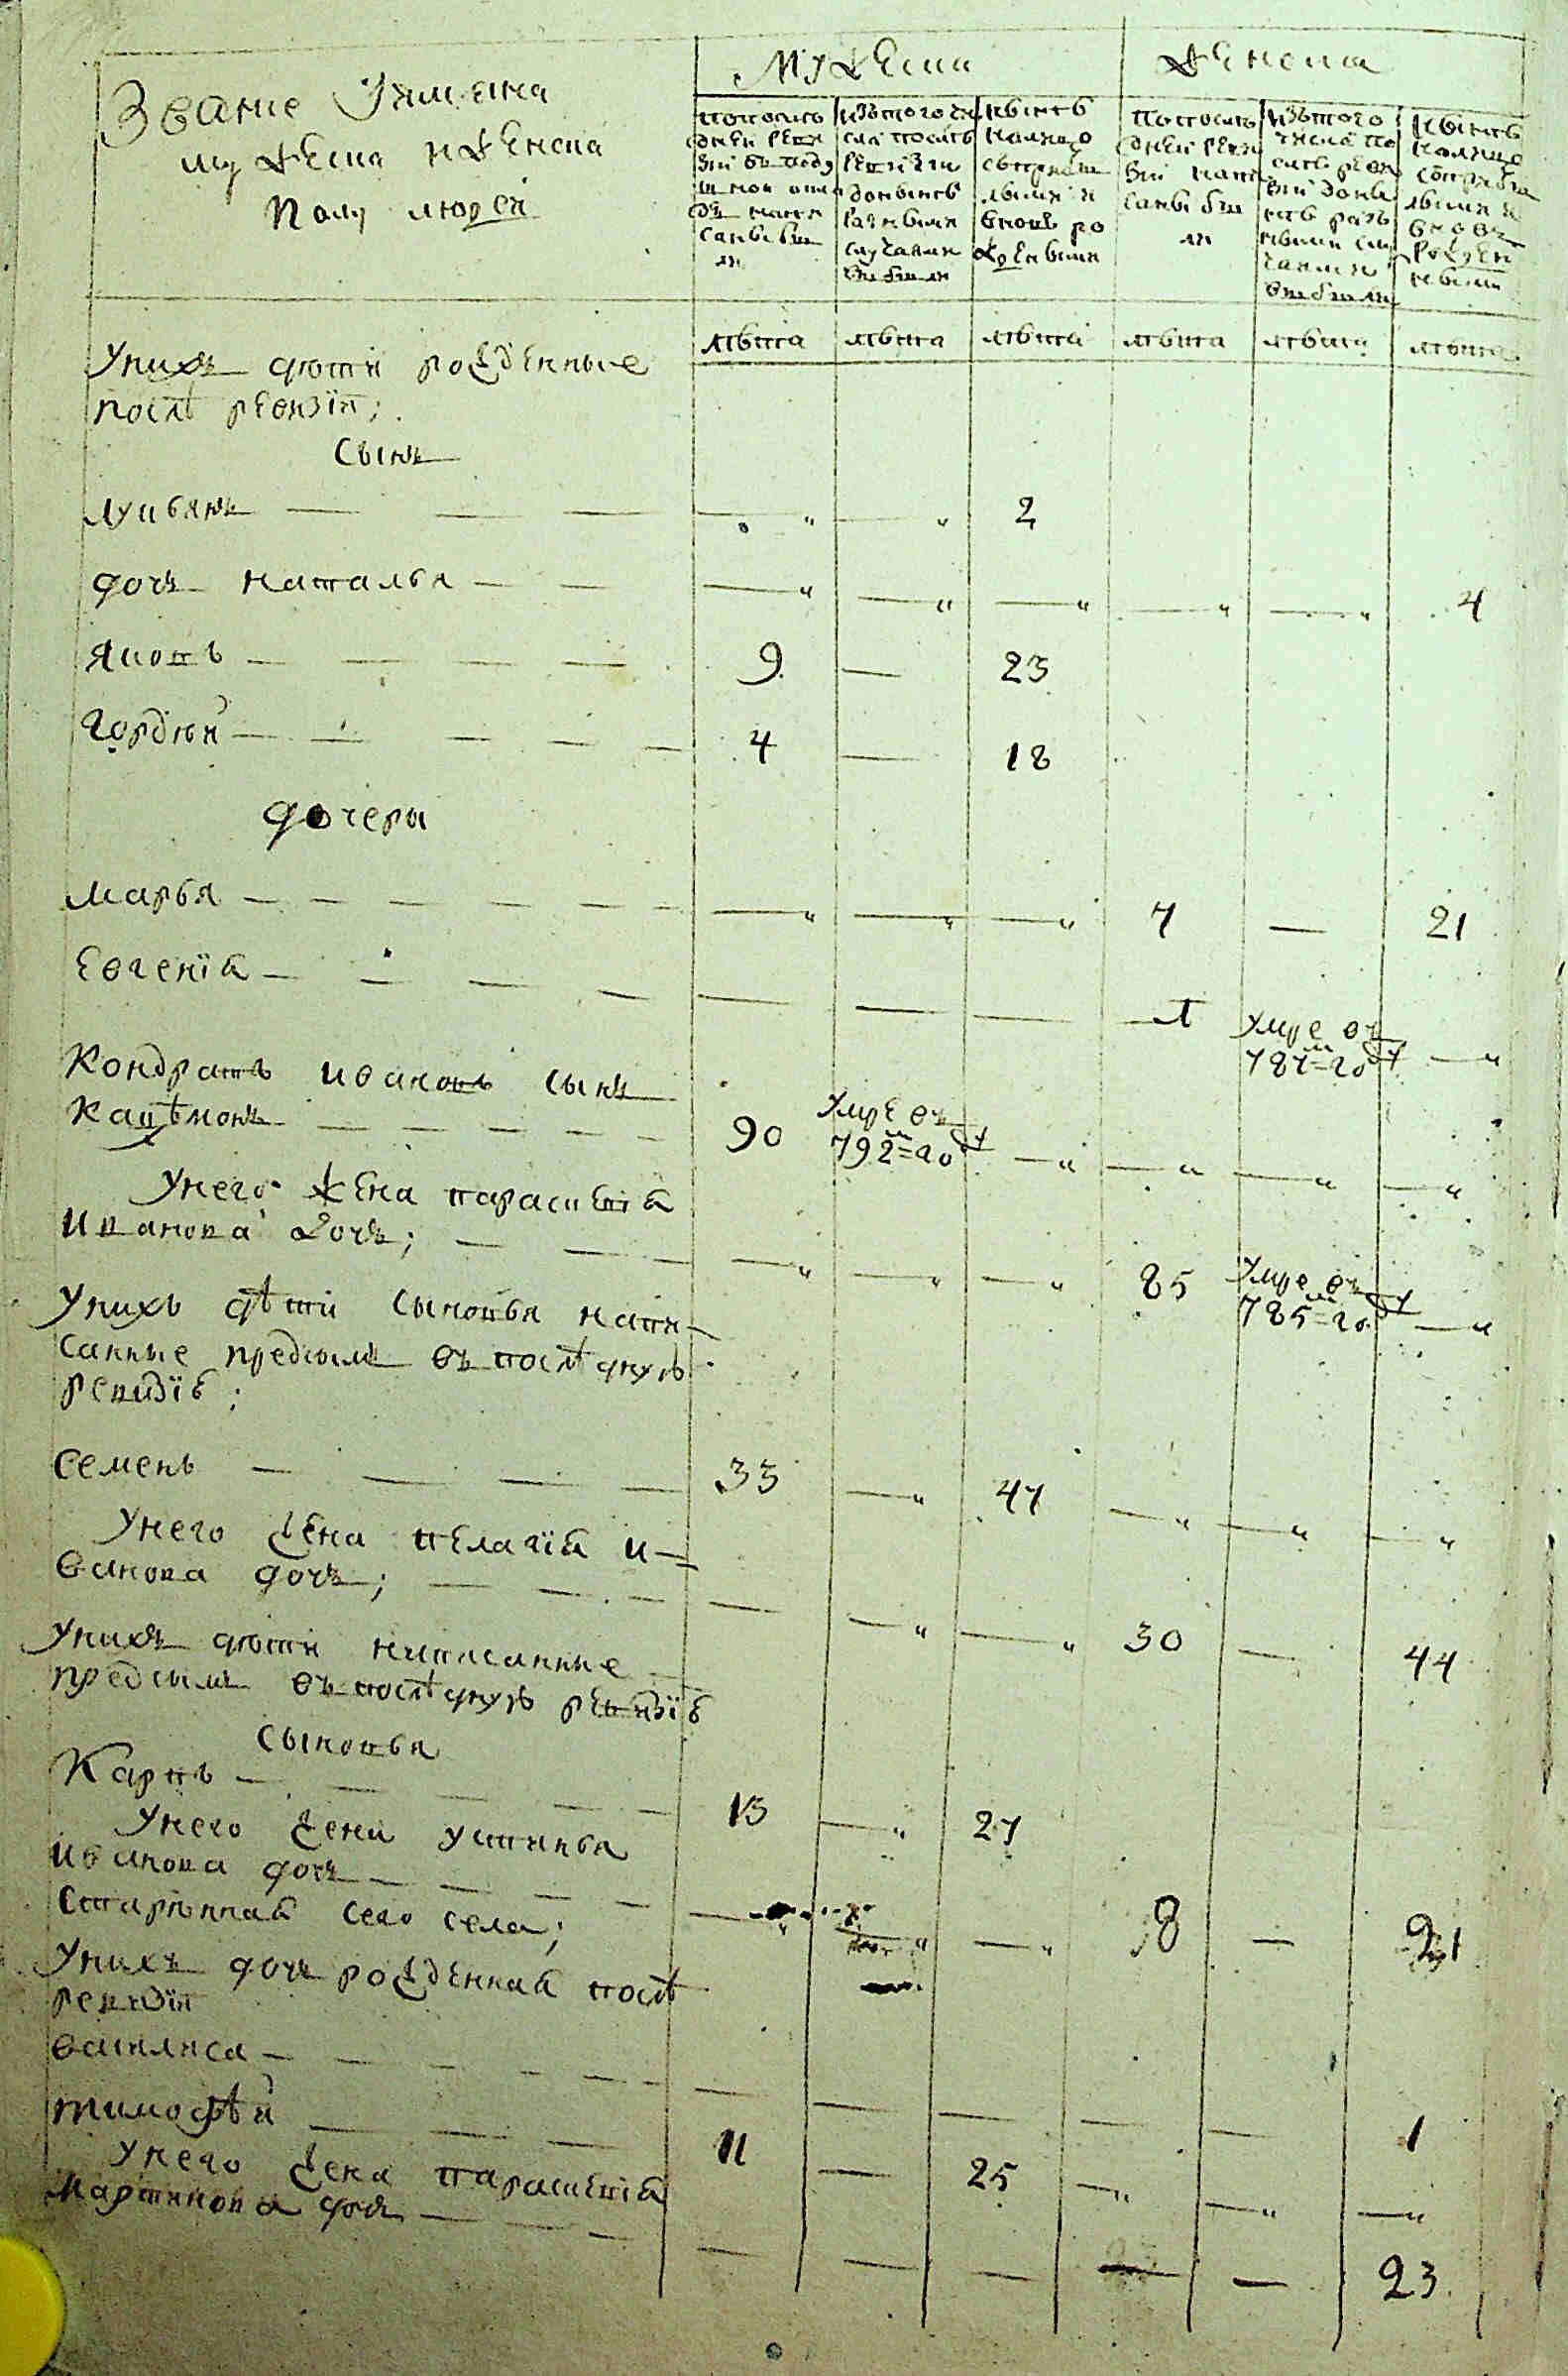 Звание Имяна
мужеска и женска
полу людей
Мужеска
Женска
по после
дней реви
зии въ поду
шной окла
дъ напи
саны бы
ли
изъ того чи
сла после
ревизии
до ныне
разными
случаями
выбыли
ныне
на лицо
съ прибы
лыми и
вновь ро
жденными
по после
дней реви
зии напи
саны бы
ли
изъ того
числа по
сле реви
зии до ны
не раз
ными слу
чаями
выбыли
ныне
на лицо
с прибы
лыми и
вновь
рожден
ными
лѣта лѣта лѣта лѣта лѣта лѣта
У нихъ дѣти рожденные
послѣ ревизіи;
Сынъ
Лукьянъ — — — 2
дочь Наталья — — 4
Яковъ — — — — 9 — 23
Гордѣй — — — — — 4 — 18
дочери
Марья — — — — — 7 — 21
Евгенія — — — — 1 умре въ 787 м году
Кондратъ Ивановъ сынъ
— — — — — 90 умре въ 792 м году
У него жена Параскевія
Иванова дочь; — — — 85 умре въ 785 м году
У нихъ дѣти сыновья напи-
санные предсимъ въ послѣдную
ревизію;
Семенъ — — — — 33 — 47
У него жена Пелагія И=
ванова дочь; — — — 30 — 44
У нихъ дѣти написанные
предсимъ въ послѣдную ревизію
Сыновья
Карпъ — — — — 13 — 27
У него жена Устинья
Иванова дочь — — — —
Старинная сего села; 8 — 21
У нихъ дочь рожденная послѣ
ревизіи
Василиса — — — — — 1
Тимофѣй — — — 11 — 25
У него жена Параскевія
Мартинова дочь — — — 23